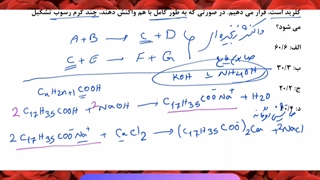 کلرید است، قرار می دهیم. در صورتی که به طور کامل با هم واکنش دهند. چند گرم رسوب تشکیل
می شود؟
الف: ۶۰/۶
A + B → C + D
ب: ۳۰/۳
C + E → F + G
KOH یا NH4OH
ج: ۲۰/۲
CxH2n+1COOH
2 C17H35COOH + 2NaOH → C17H35COO⁻Na⁺ + H2O
2 C17H35COO⁻Na⁺ + CaCl2 → (C17H35COO⁻)2Ca + 2NaCl